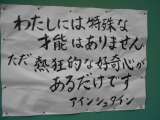 わたしには特殊な
才能はありません
ただ熱狂的な好奇心が
あるだけです
アインシュタイン